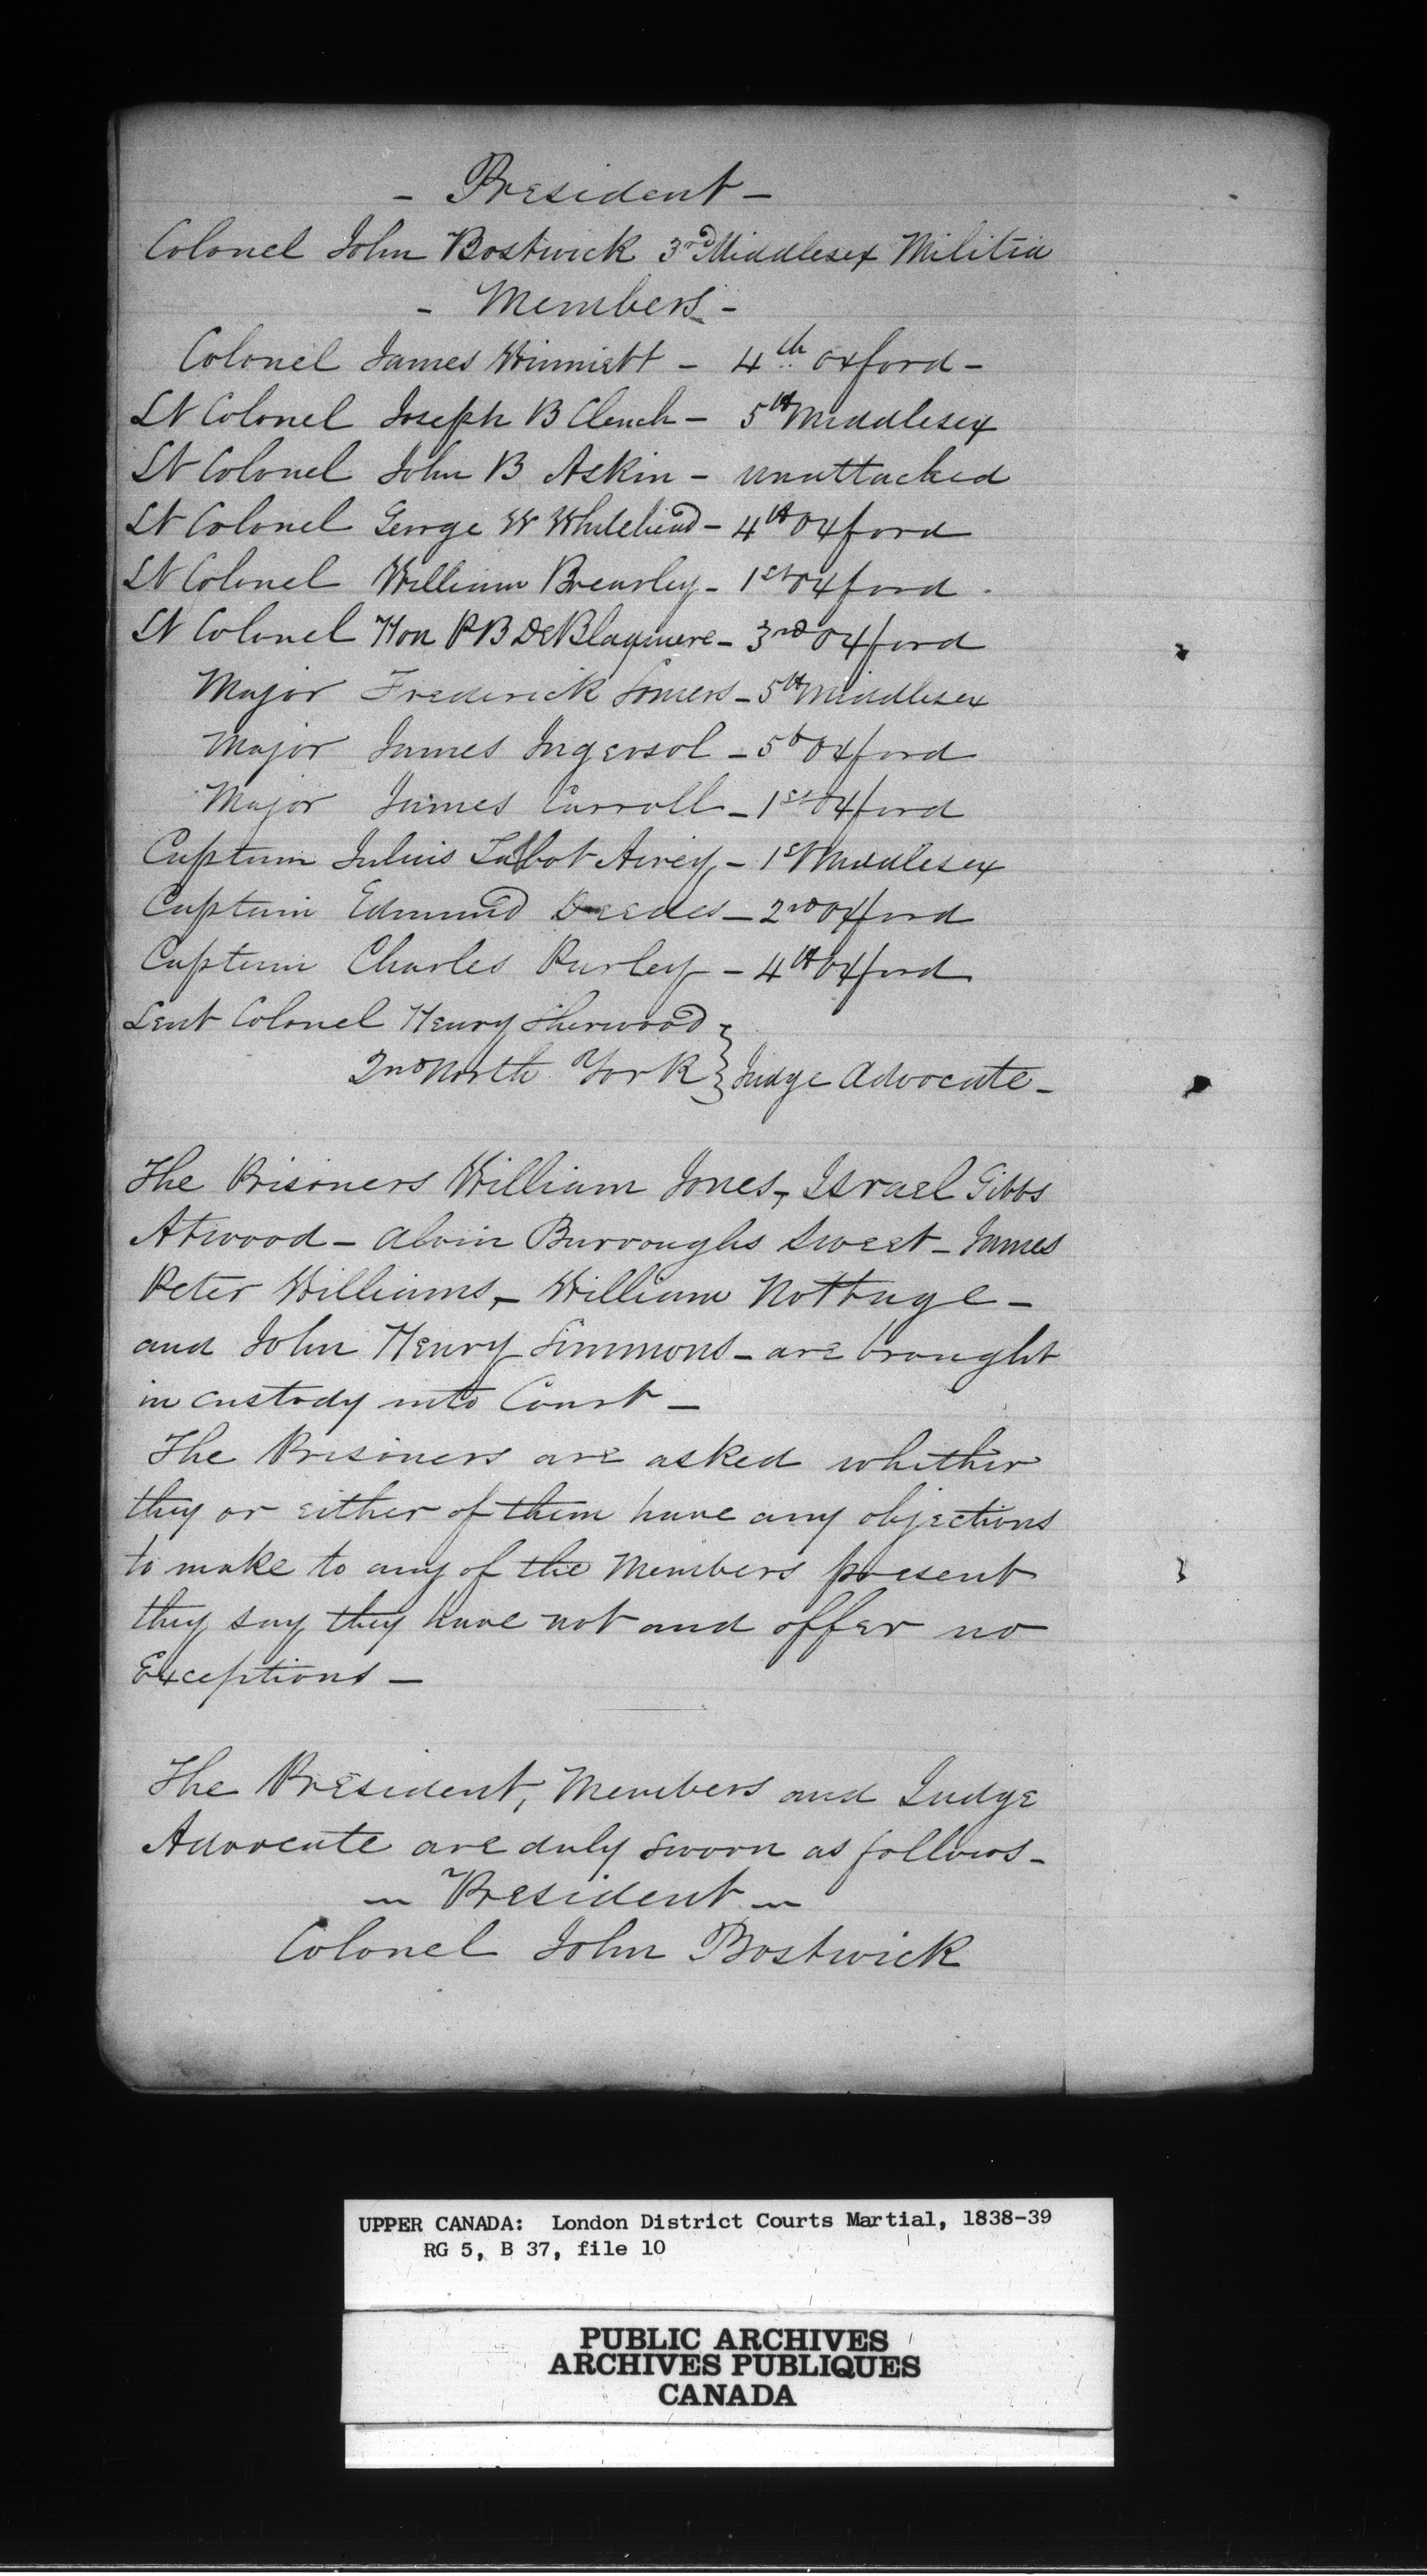 - President -
Colonel John Bostwick 3rd Middlesex Militia
- Members -
Colonel James Winniett - 4th Oxford -
Lt Colonel Joseph B Clench - 5th Middlesex
Lt Colonel John B Askin - unattached
Lt Colonel George W Whitehead - 4th Oxford
Lt Colonel William Brearley - 1st Oxford .
Lt Colonel Hon P B DeBlaquiere - 3rd Oxford
Major Frederick Somers - 5th Middlesex
Major James Ingersol - 5th Oxford
Major James Carroll - 1st Oxford
Captain Julius Talbot Airey - 1st Middlesex
Captain Edmund Deedes - 2nd Oxford
Captain Charles Purley - 4th Oxford
Leut Colonel Henry Sherwood
2nd North York } Judge Advocate -
The Prisoners William Jones, Israel Gibbs
Atwood - Alvin Burroughs Sweet - James
Peter Williams, - William Nottage -
and John Henry Simmons - are brought
in custody into Court -
The Prisoners are asked whether
they or either of them have any objections
to make to any of the Members present
they say they have not and offer no
Exceptions -
The President, Members and Judge
Advocate are duly sworn as follows -
- President -
Colonel John Bostwick
UPPER CANADA: London District Courts Martial, 1838-39
RG 5, B 37, file 10
PUBLIC ARCHIVES
ARCHIVES PUBLIQUES
CANADA